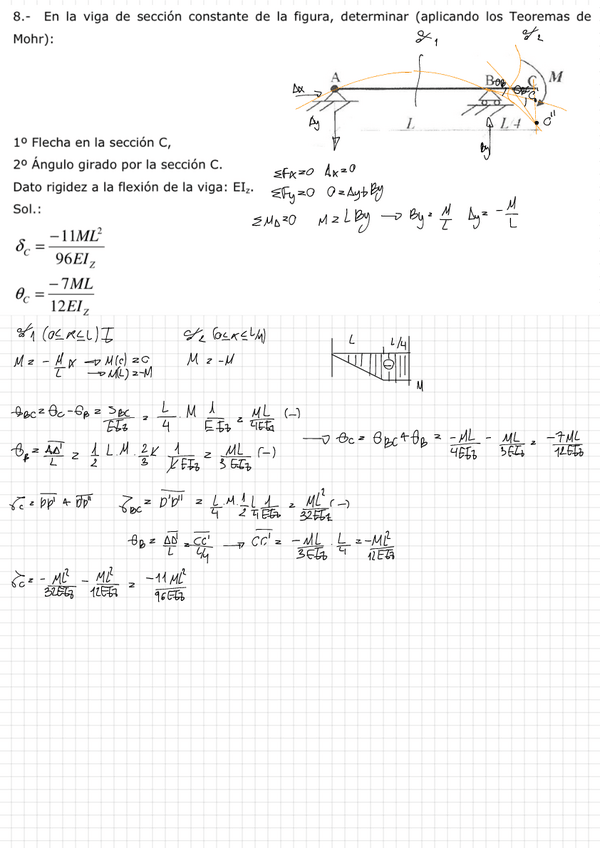 8.- En la viga de sección constante de la figura, determinar (aplicando los Teoremas de
Mohr):
A
B
C
M
L
L/4
C''
Ax
Ay
By
1º Flecha en la sección C,
2º Ángulo girado por la sección C.
Dato rigidez a la flexión de la viga: EIz.
Sol.:
δC = -11ML² / 96EIZ
θC = -7ML / 12EIZ
ΣFx=0 Ax=0
ΣFy=0 0=Ay+By
ΣMA=0 M=LBy → By= M/L Ay= -M/L
(0≤x≤L) I
(0≤x≤L/4)
M= -M/L x → M(0)=0
→ M(L)=-M
M = -M
L
L/4
M
θBC=θC-θB = SBC/EIz = L/4 · M 1/EIz = ML/4EIz (-)
→ θC = θBC+θB = -ML/4EIz - ML/3EIz = -7ML/12EIz
θB= AA'/L = 1/2 L·M·2/3 L 1/L EIz = ML/3EIz (-)
= L/4·M·1/2 L/4 1/EIz = ML²/32EIz (-)
θB = AA'/L = CC'/L/4 → CC' = -ML/3EIz · L/4 = -ML²/12EIz
δC= -ML²/32EIz - ML²/12EIz = -11ML²/96EIz